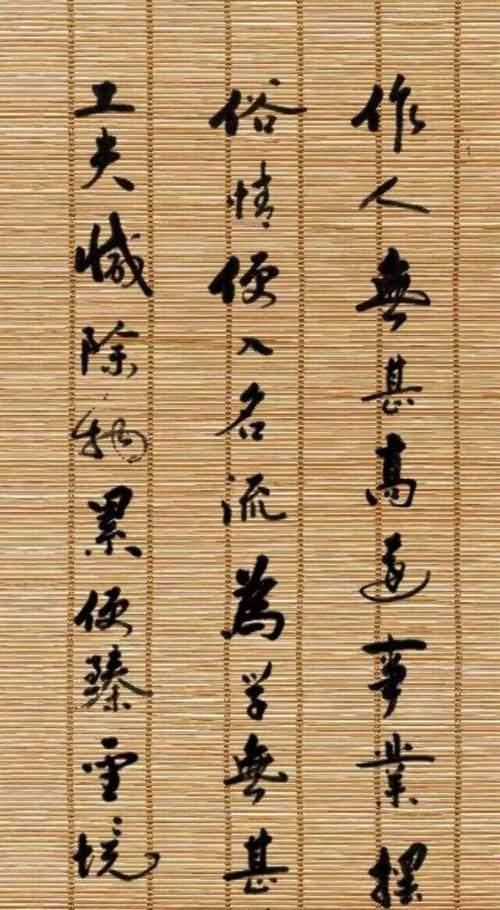 作人無甚高遠事業擺
俗情便入名流為学無甚
工夫減除物累便臻聖境